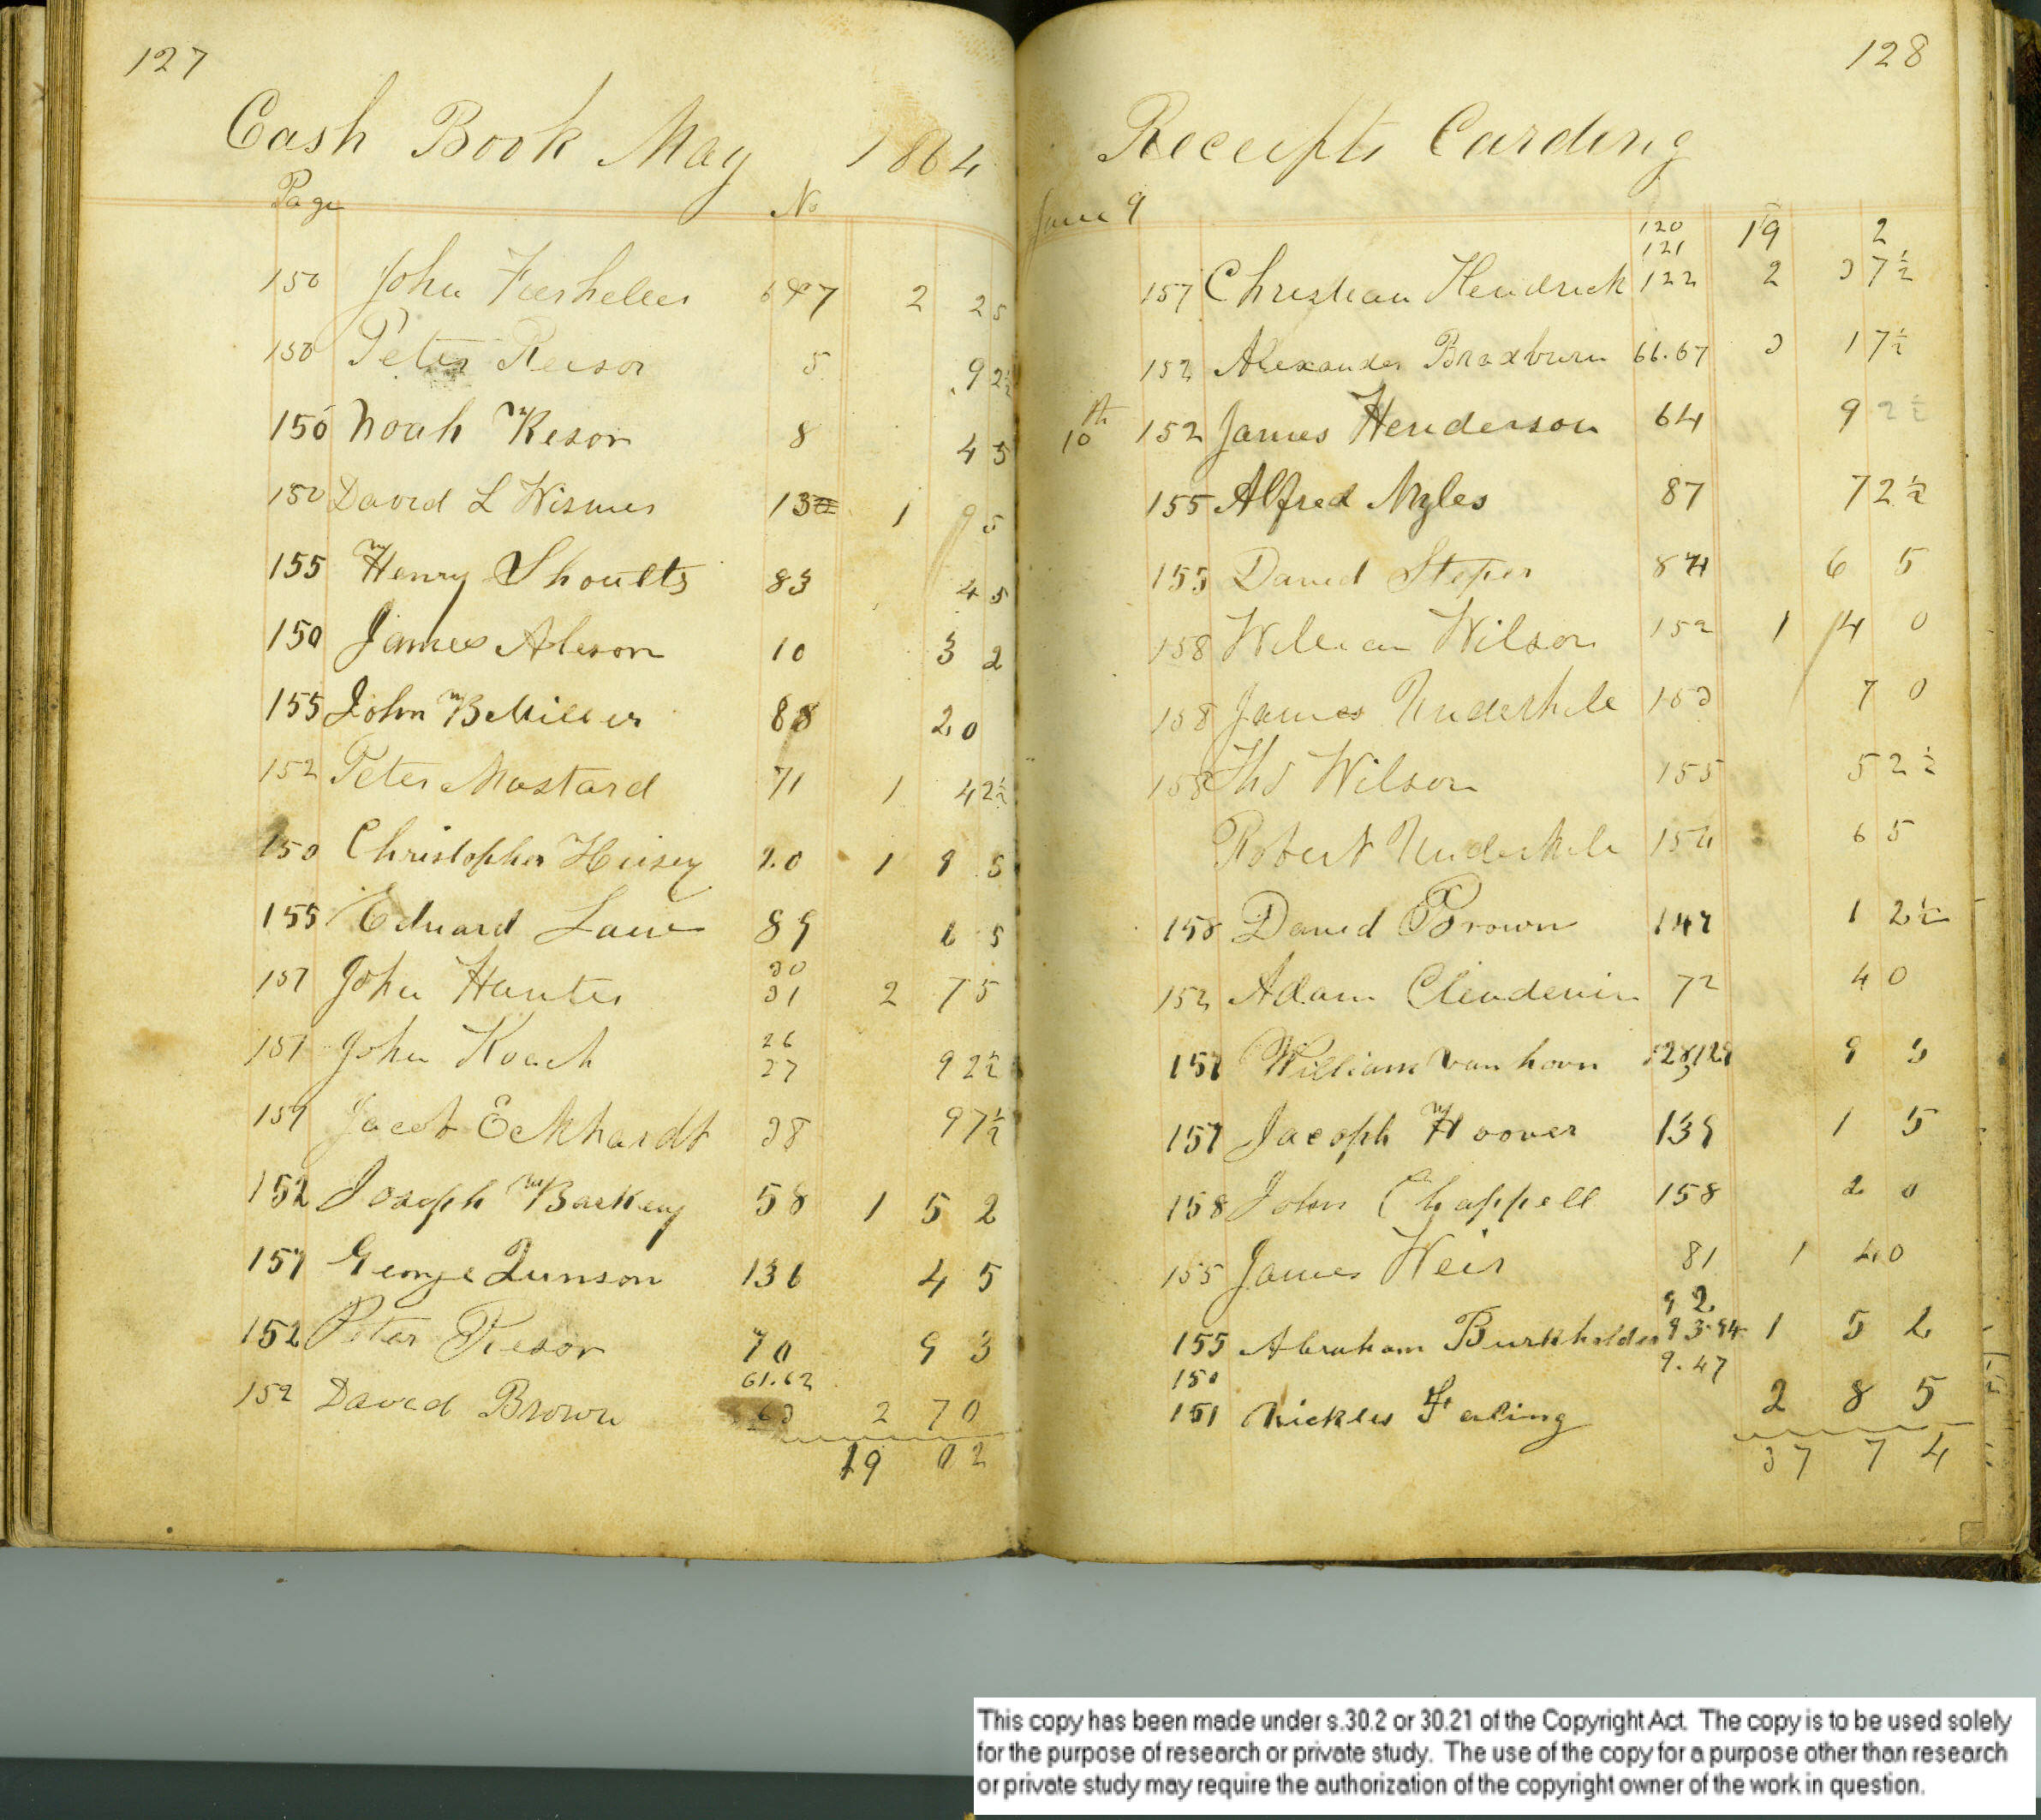 127
Cash Book May 1864
Page No
150 John 647 2 25
150 Peter Reesor 5 92½
150 Noah Resor 8 45
150 David L Wismer 13 1 95
155 Henry Shoults 83 45
150 James Alison 10 32
155 John B Miller 88 20
152 Peter Mustard 71 1 42½
150 Christopher Heisey 20 1 95
155 Edward Laur 89 65
30
157 John Hunter 31 2 75
26
157 John Koch 27 92½
157 Jacob Eckhardt 38 97½
152 Joseph Barkey 58 1 52
157 George Qunson 136 45
152 Peter Resor 70 93
61.62
152 David Brown 63 2 70
19 02
128
Receipts Carding
June 9
120 19 2
121
157 Christian Hendrick 122 2 37½
152 Alexander Bradburn 66.67 3 17½
10th 152 James Henderson 64 92½
155 Alfred Myles 87 72½
155 David Steper 84 65
158 William Wilson 152 1 40
158 James Underhile 153 70
158 Thos Wilson 155 52½
Robert Underhile 154 65
158 David Brown 147 12½
152 Adam Clendenin 72 40
157 William van horn 128,129 95
157 Jacoph Hoover 139 15
158 John Chappell 158 20
155 James Weir 81 1 40
92
155 Abraham Burkholder 93.94 1 52
150 9.47
151 Nickles Feling 2 85
37 74
This copy has been made under s.30.2 or 30.21 of the Copyright Act. The copy is to be used solely
for the purpose of research or private study. The use of the copy for a purpose other than research
or private study may require the authorization of the copyright owner of the work in question.